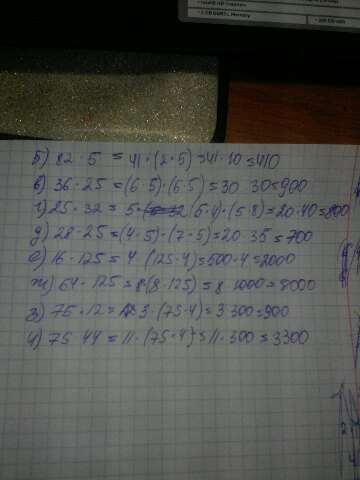 б) 82 · 5 = 41 · (2 · 5) = 41 · 10 = 410
в) 36 · 25 = (6 · 5) · (6 · 5) = 30 · 30 = 900
г) 25 · 32 = 5 · (5 · 4) · (5 · 8) = 20 · 40 = 800
д) 28 · 25 = (4 · 5) · (7 · 5) = 20 · 35 = 700
е) 16 · 125 = 4 · (125 · 4) = 500 · 4 = 2000
ж) 64 · 125 = 8 · (8 · 125) = 8 · 1000 = 8000
з) 75 · 12 = 3 · (75 · 4) = 3 · 300 = 900
и) 75 · 44 = 11 · (75 · 4) = 11 · 300 = 3300